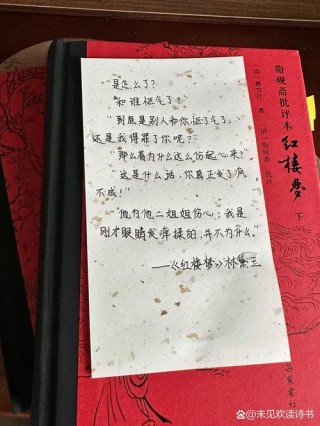 是怎么了?
"和谁怄气了?"
"到底是别人和你怄了气了,
还是我得罪了你呢?"
"那么着为什么这么伤起心来?"
"这是什么话,你真正发了疯
不成!"
"他为他二姐姐伤心;我是
刚才眼睛发痒揉的,并不为什么。"
——《红楼梦》林黛玉
脂砚斋批评本
红楼梦
下
@未见欢读诗书